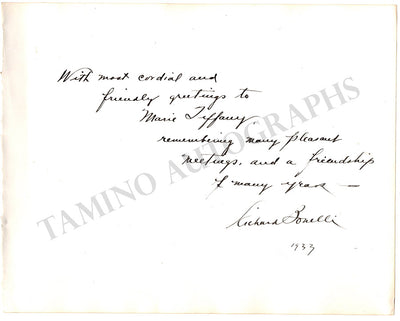 With most cordial and
friendly greetings to
Marie Tiffany
remembering many pleasant
meetings, and a friendship
of many years —
Richard Bonelli
1933
TAMINO AUTOGRAPHS